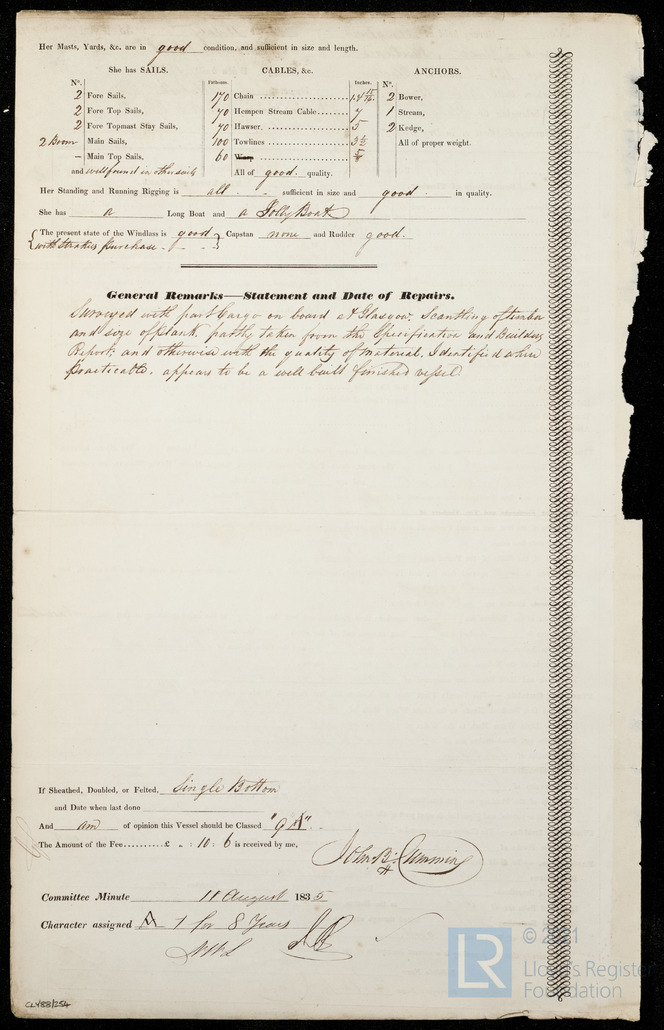 Her Masts, Yards, &c. are in good condition, and sufficient in size and length.
She has SAILS. CABLES, &c. ANCHORS.
Nº. Fathoms. Inches. Nº.
2 Fore Sails, 170 Chain 2 Bower,
2 Fore Top Sails, 70 Hempen Stream Cable 7 1 Stream,
2 Fore Topmast Stay Sails, 70 Hawser, 5 2 Kedge,
2 Boom Main Sails, 100 Towlines 3½ All of proper weight.
– Main Top Sails, 60 Warp
and well found in other sails All of good quality.
Her Standing and Running Rigging is all sufficient in size and good in quality.
She has a Long Boat and a Jolly Boat
The present state of the Windlass is good Capstan none and Rudder good.
with Purchase
General Remarks—Statement and Date of Repairs.
Surveyed with part Cargo on board at Glasgow; Scantling of timber
and size of plank partly taken from the Specification and Builders
Report; and otherwise with the quality of Material, Identified when
practicable, appears to be a well built finished vessel.
If Sheathed, Doubled, or Felted, Single Bottom
and Date when last done
And am of opinion this Vessel should be Classed "9 A"
The Amount of the Fee £ „ : 10 : 6 is received by me,
John B. Cumming
Committee Minute 11 August 1835
Character assigned A 1 for 8 Years
CLY88/254
LR
© 2021
Lloyd's Register
Foundation